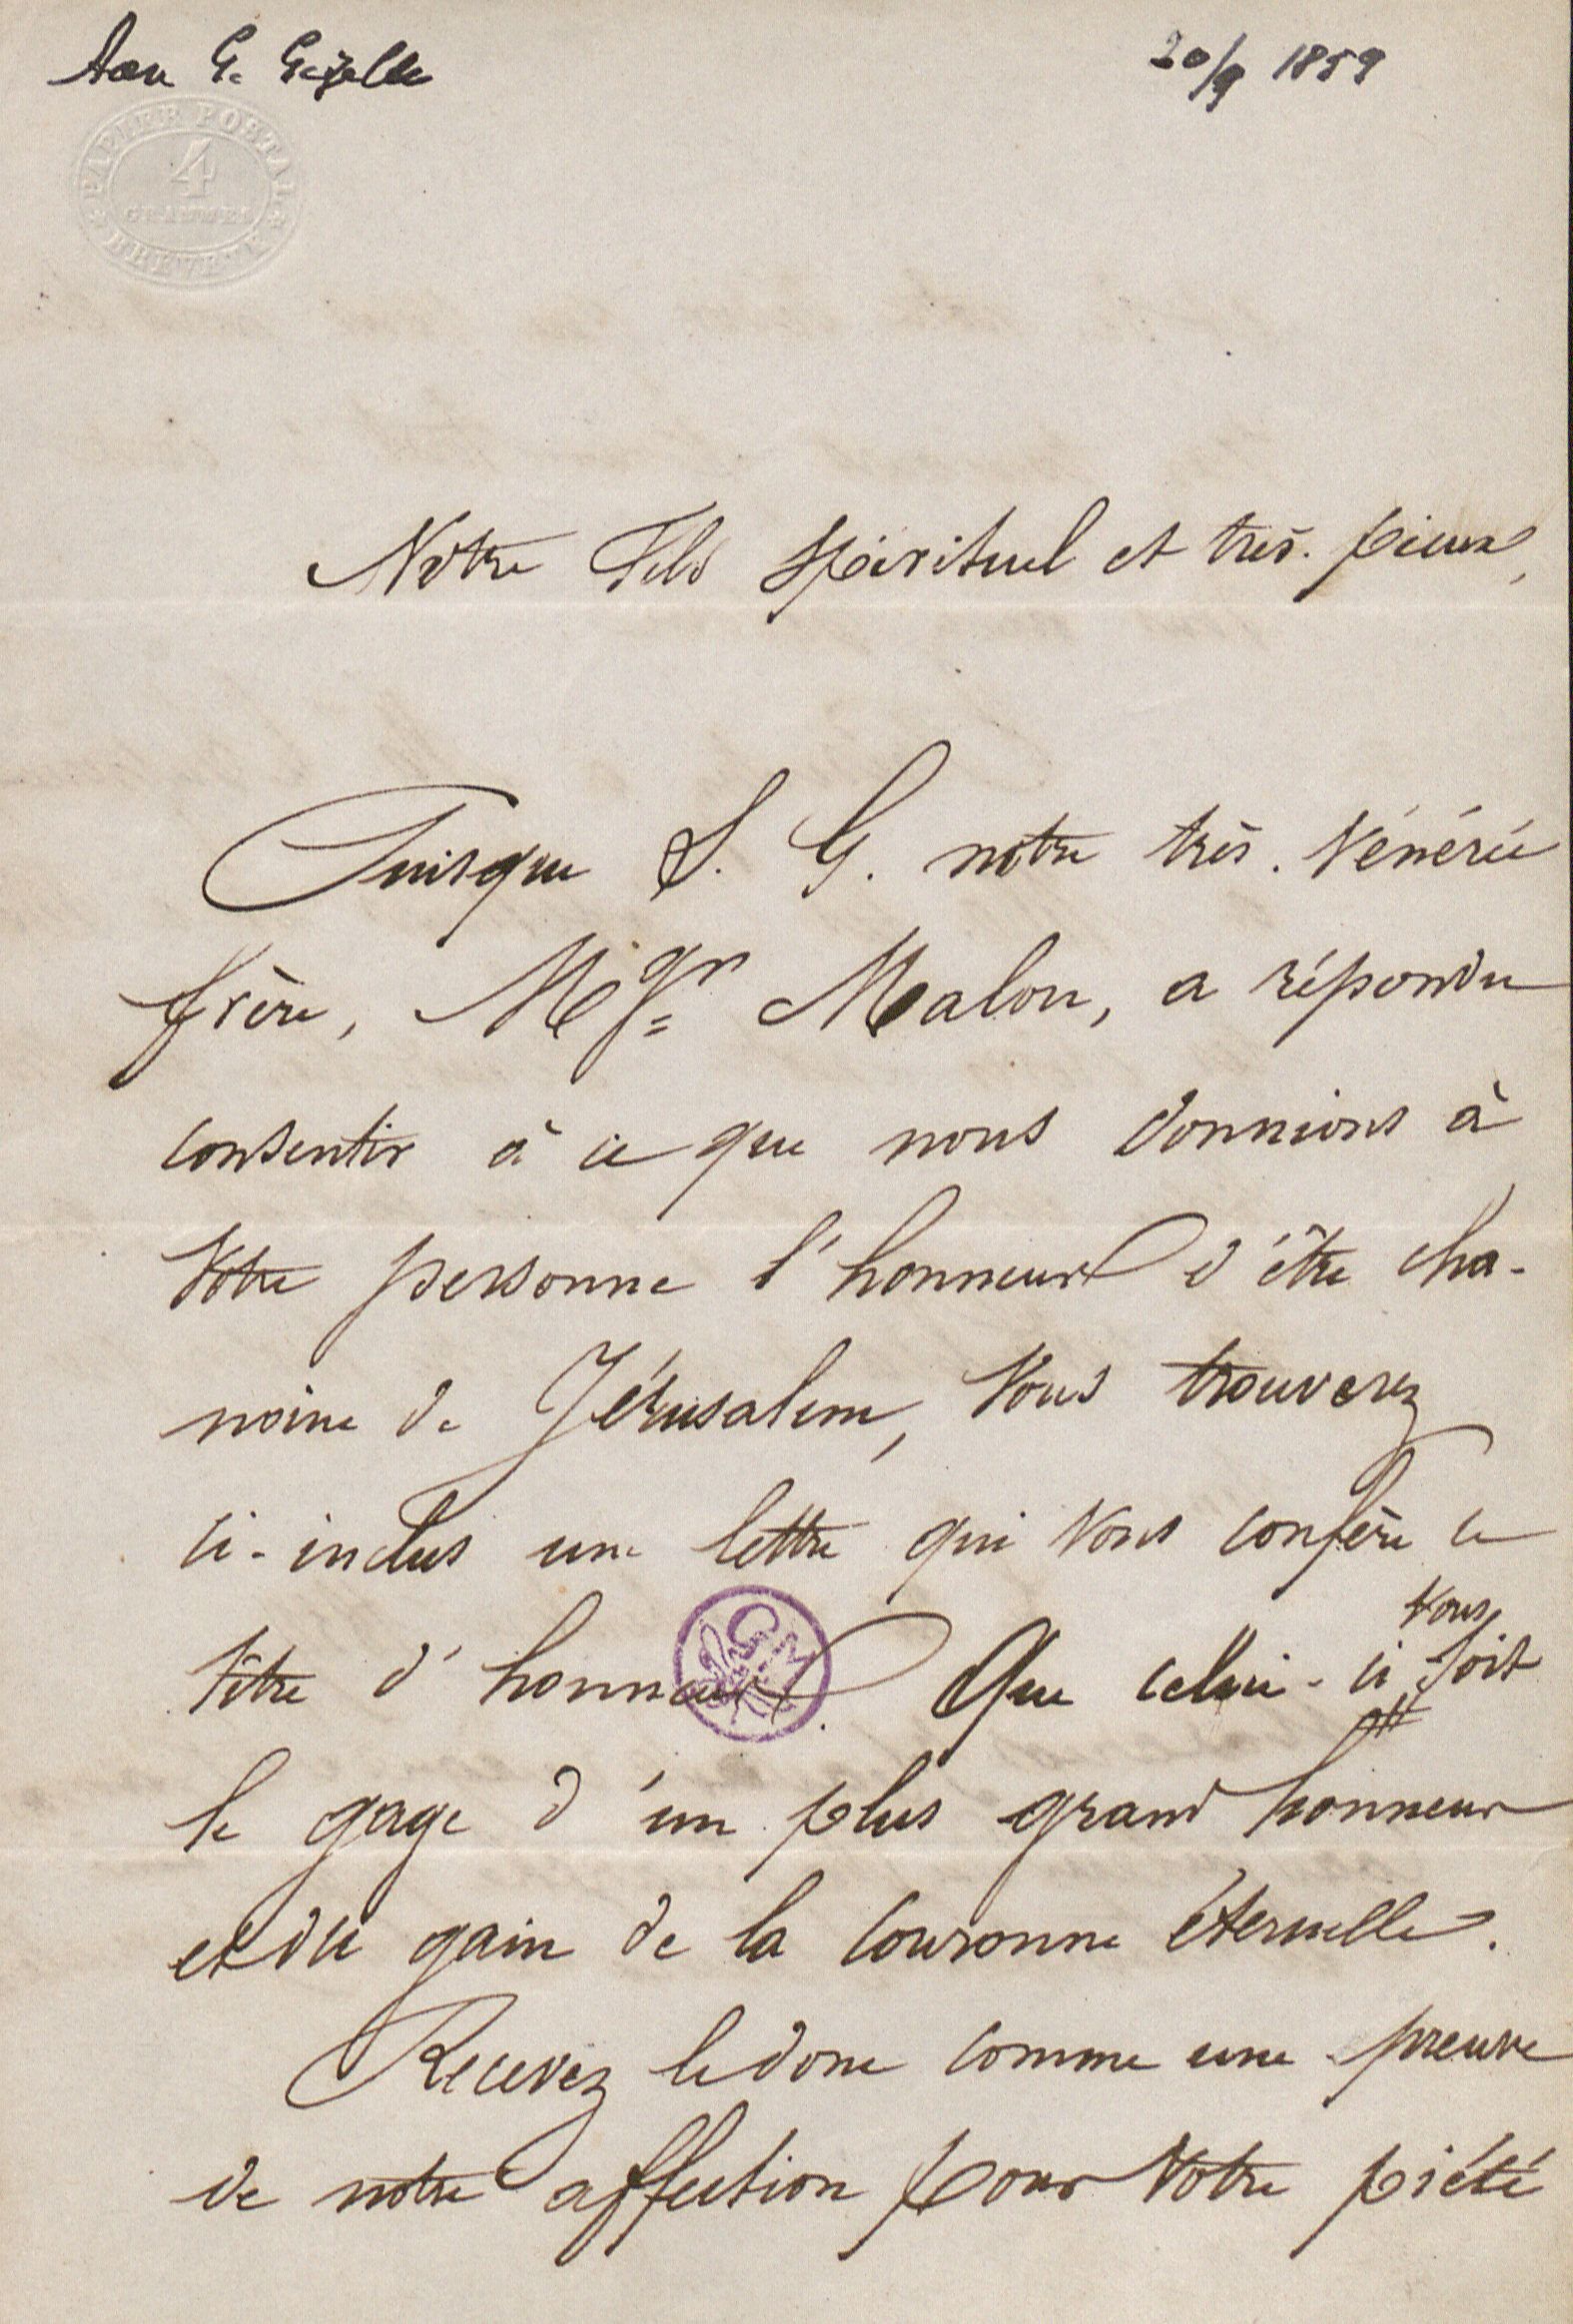 Aan G. Gezelle
20/9 1859
PAPIER POSTAL
4
GRAMMES
BREVETÉ
Notre Fils Spirituel et très-pieux,
Puisque S. G. notre très-Vénéré
frère, Mgr Malou, a répondu
consentir à ce que nous donnions à
Votre personne l'honneur d'être cha-
noine de Jérusalem, Vous trouverez
ci-inclus une lettre qui Vous confère ce
titre d'honneur. Que celui-ci Vous soit
le gage d'un plus grand honneur
et du gain de la Couronne éternelle.
Recevez le donc comme une preuve
de notre affection pour Votre piété